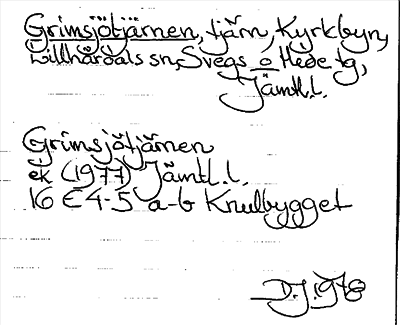 Grimsjötjärnen, tjärn, Kyrkbyn,
Lillhärdals sn, Svegs o Hede tg,
Jämtl.l.
Grimsjötjärnen
ek (1977) Jämtl.l.
16 E 4-5 a-b Knulbygget
D.J. 1978